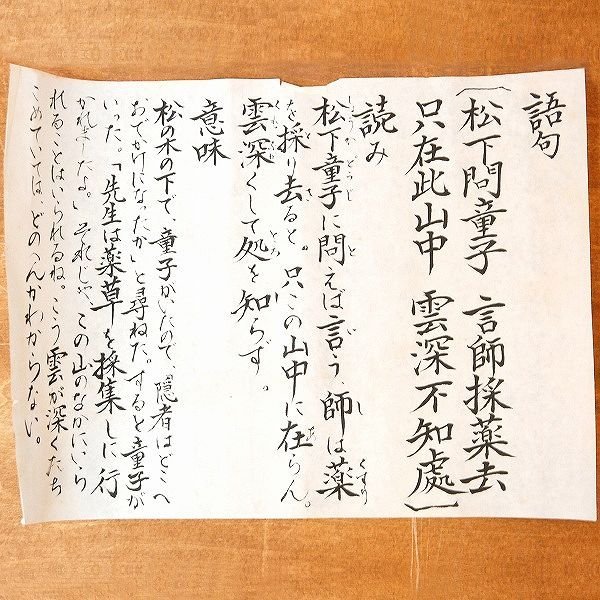 語句
〔松下問童子 言師採薬去
只在此山中 雲深不知處〕
読み
松下童子に問えば言う、師は薬
を採り去ると。只この山中に在らん。
雲深くして処を知らず。
意味
松の木の下で、童子がいたので「隠者はどこへ
おでかけになったか」と尋ねた。すると童子が
いった。「先生は薬草を採集しに行
かれましたよ。」それじゃ、この山のなかにいら
れることはいられるね。こう雲が深くたち
こめていては、どのへんかわからない。